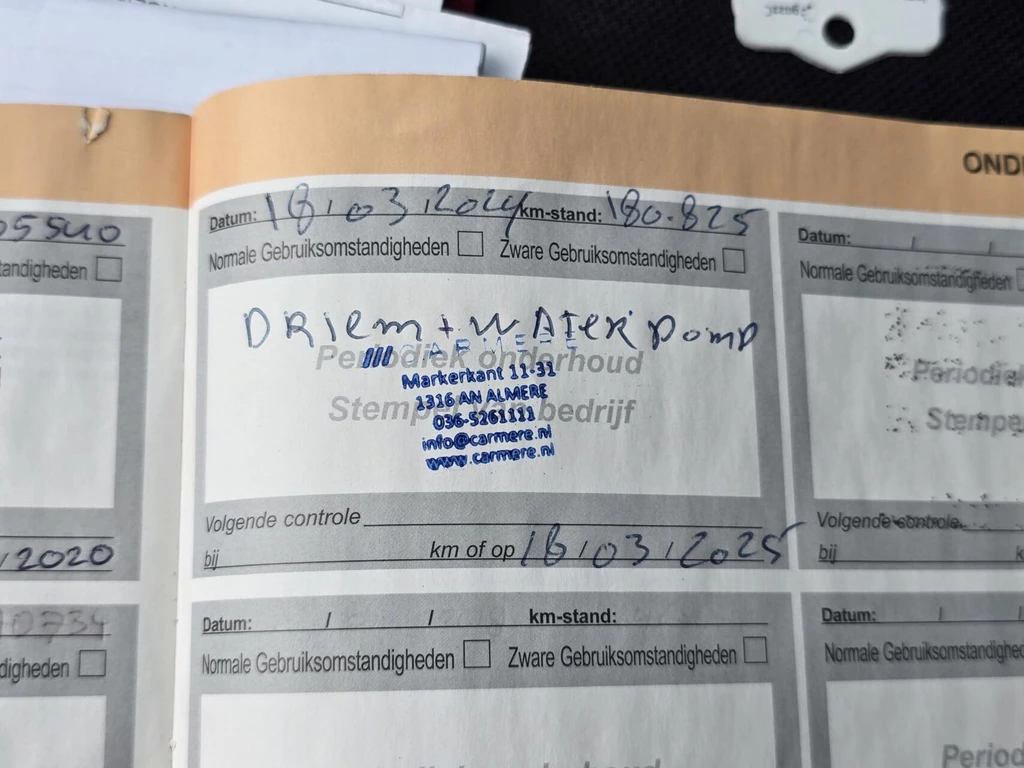 OND
05540
Datum: 18 / 03 / 2024 km-stand: 180.825
Datum: / /
tandigheden
Normale Gebruiksomstandigheden Zware Gebruiksomstandigheden
Normale Gebruiksomstandigheden
DRIEM + WATER POMP
CARMERE
Periodiek onderhoud
Markerkant 11-31
1316 AN ALMERE
Stempel van bedrijf
036-5261111
info@carmere.nl
www.carmere.nl
Periodiek
Stempe
Volgende controle
Volgende controle
/ 2020
bij km of op 18 / 03 / 2025
bij k
10734
Datum: / / km-stand:
Datum: / /
digheden
Normale Gebruiksomstandigheden Zware Gebruiksomstandigheden
Normale Gebruiksomstandighede
Period